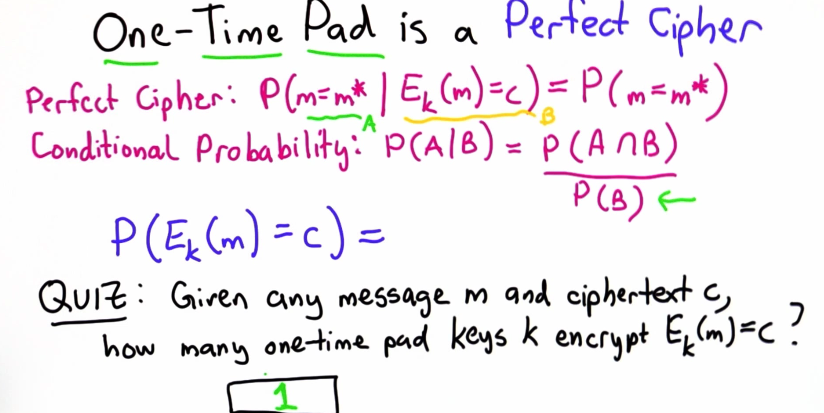 One-Time Pad is a Perfect Cipher
Perfect Cipher: P(m=m* | E_k(m)=c) = P(m=m*)
A B
Conditional Probability: P(A|B) = P(A∩B)
P(B) ←
P(E_k(m) = c) =
QUIZ: Given any message m and ciphertext c,
how many one-time pad keys k encrypt E_k(m)=c?
1